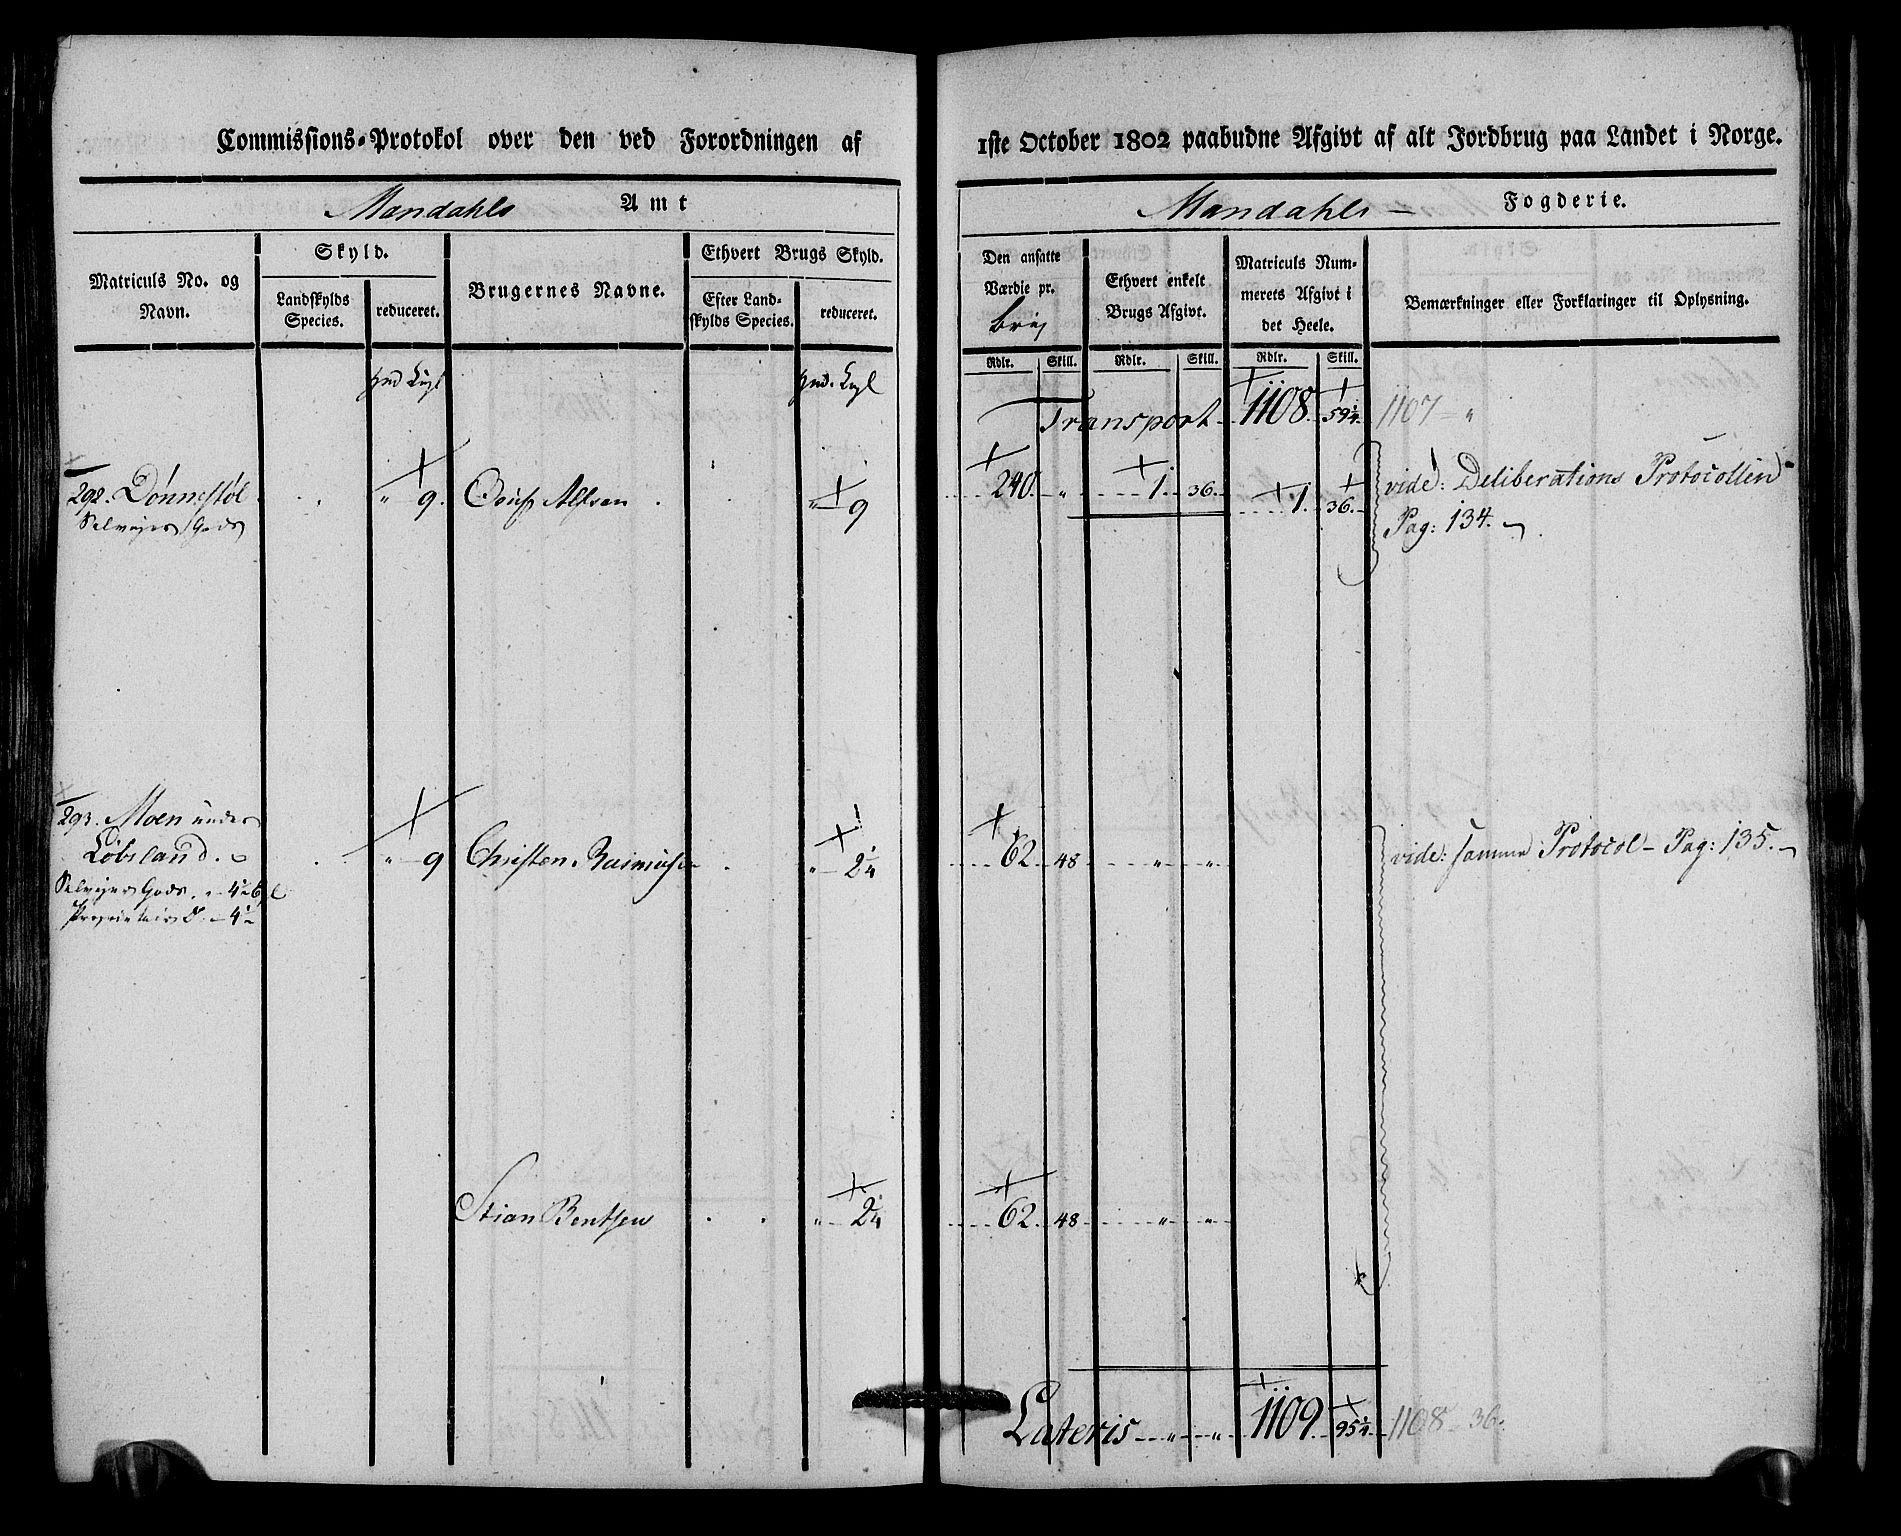 Commissions-Protokol over den ved Forordningen af 1ste October 1802 paabudne Afgivt af alt Jordbrug paa Landet i Norge.
Mandahls Amt
Mandahls Fogderie.
Matriculs No. og Navn.
Skyld.
Landskylds Species.
reduceret.
Brugernes Navne.
Ethvert Brugs Skyld.
Efter Landskylds Species.
reduceret.
Den ansatte Værdie pr.
Brug
Ethvert enkelt Brugs Afgivt.
Matriculs Nummerets Afgivt i det Heele.
Bemærkninger eller Forklaringer til Oplysning.
Rdlr. Skill. Rdlr. Skill. Rdlr. Skill.
Transport 1108 59¼ 1107 "
298. Dønnestøl " 9. Alfsen " 9 240 " 1 36 1 36 vide: Deliberations Protocollen
Selveyer Gods Pag: 134.
293. Moen under
Løbsland " 9 Christen Rasmusen " 2¼ 62 48 " " vide: samme Protocol Pag: 135.
Selveyer Gods " 4½
4½
Stian Bentsen " 2¼ 62 48 " "
Lateris " " 1109 95¼ 1108 36